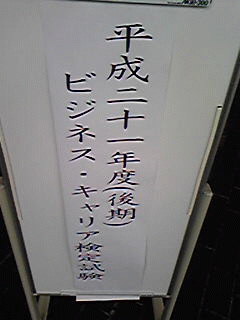 平成二十一年度(後期)
ビジネス・キャリア検定試験